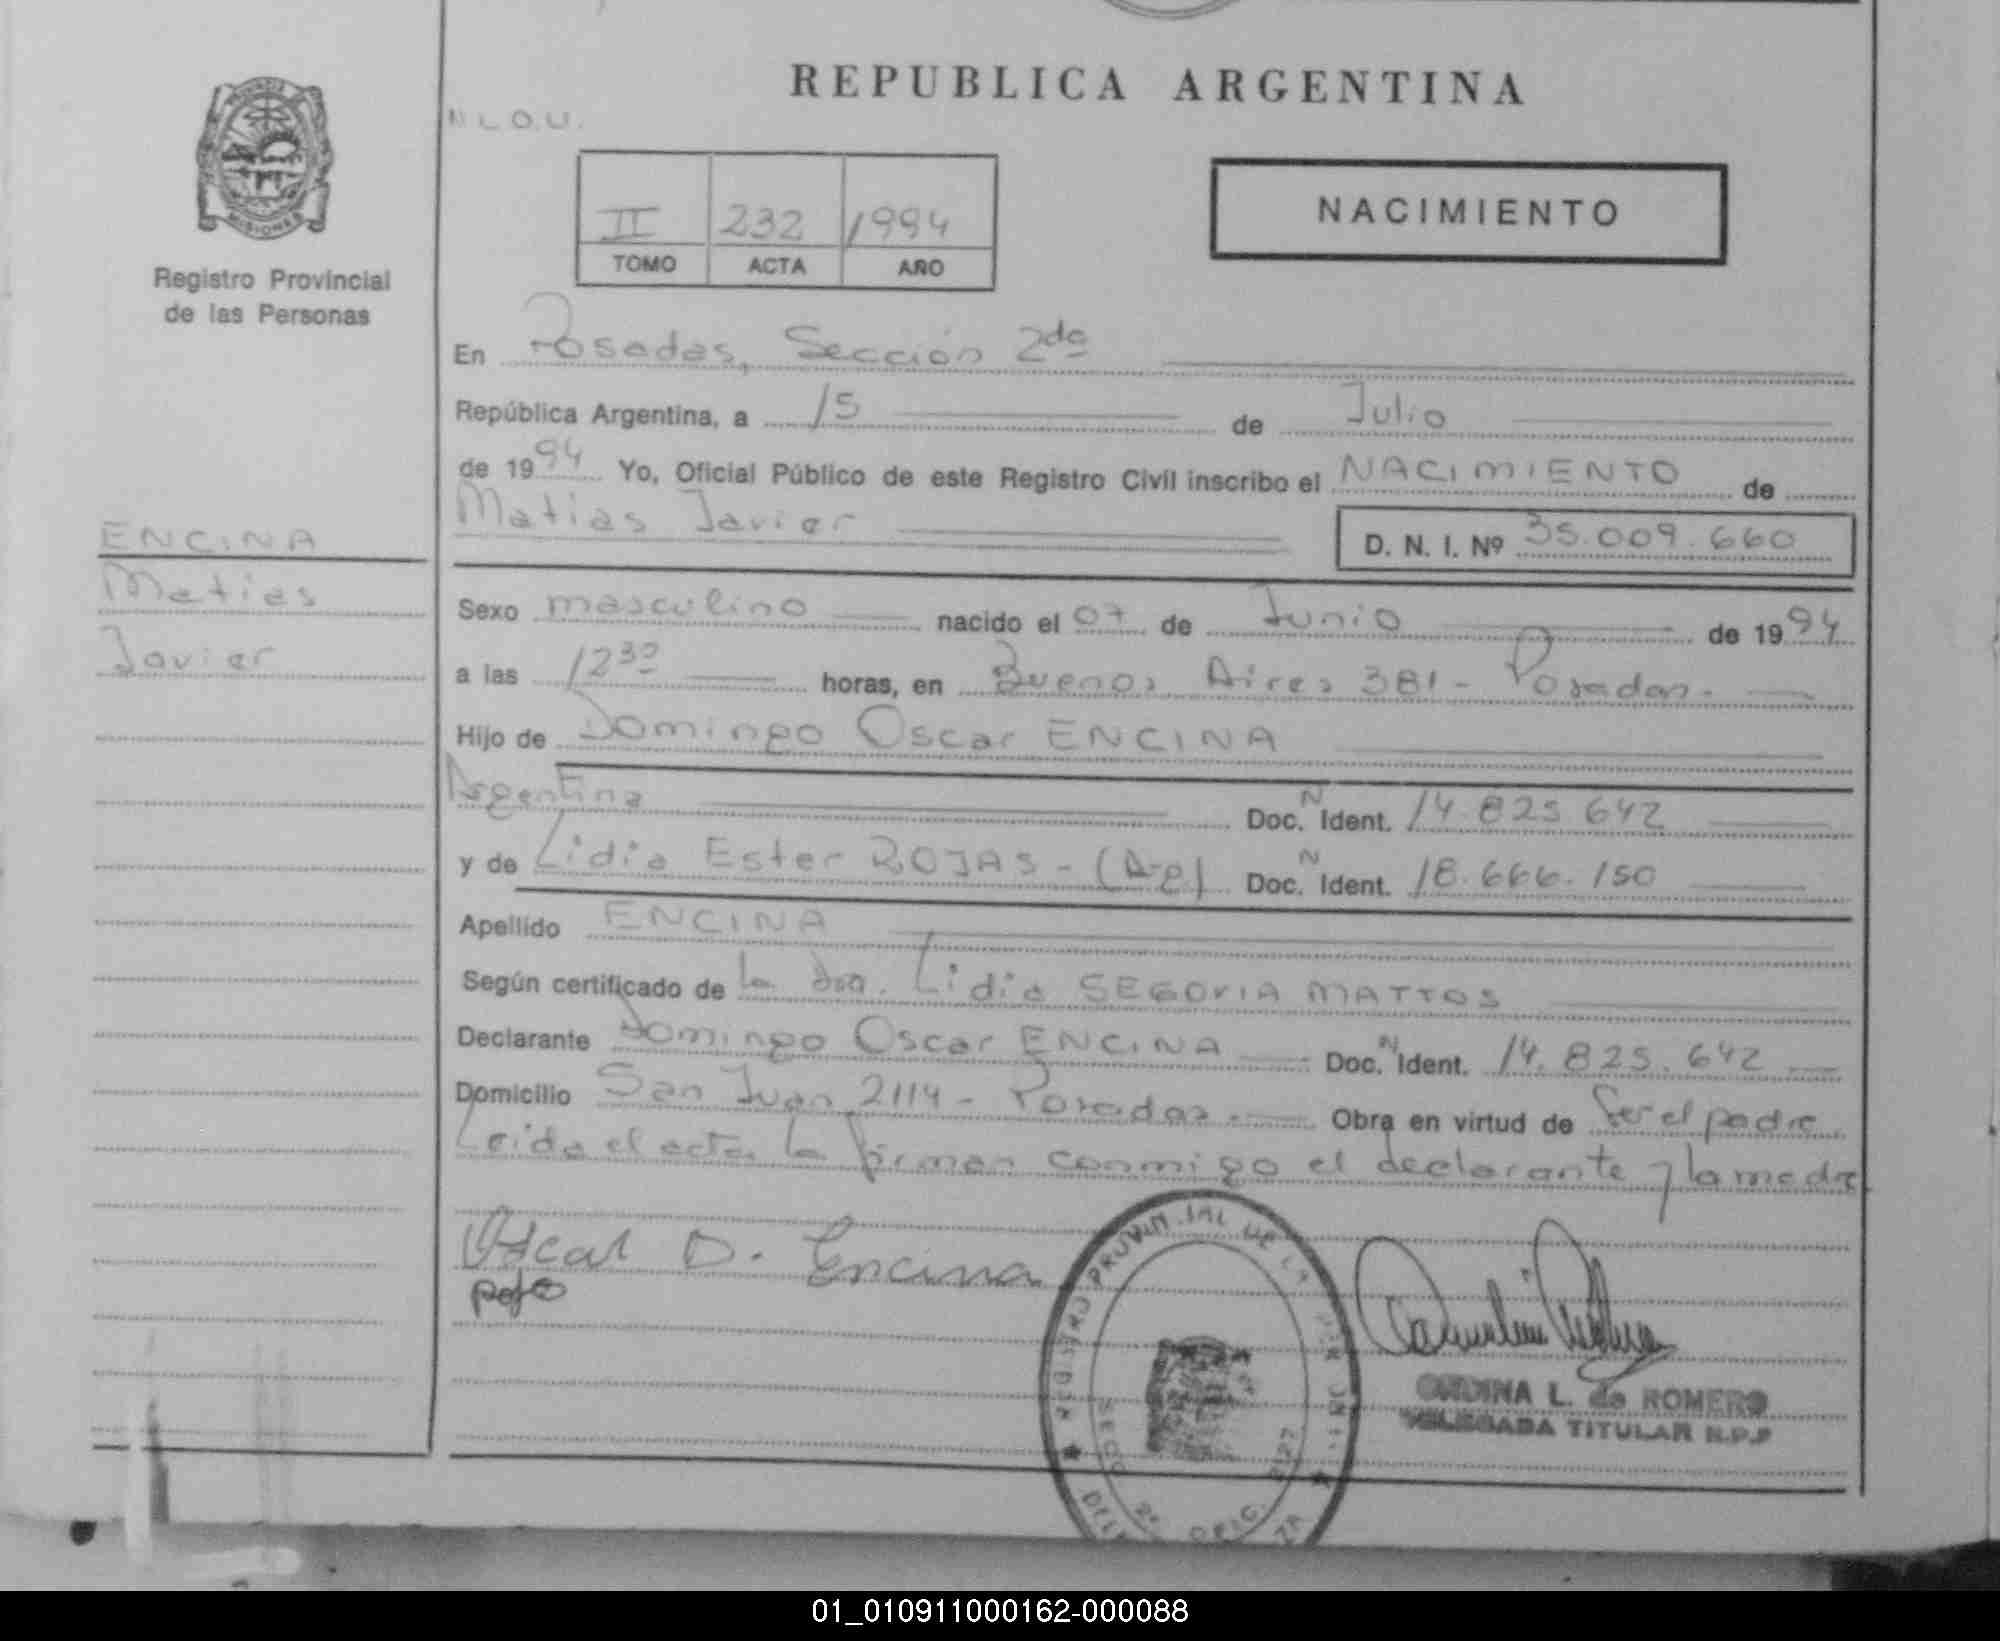 REPUBLICA ARGENTINA
N L O.U.
MISIONES
Registro Provincial
de las Personas
II 232 1994
TOMO ACTA AÑO
NACIMIENTO
En Posadas, Sección 2da
República Argentina, a 15 de Julio
de 1994 Yo, Oficial Público de este Registro Civil inscribo el NACIMIENTO de
Matias Javier
D. N. I. Nº 35.009.660
ENCINA
Matias
Javier
Sexo masculino nacido el 07 de Junio de 1994
a las 12 30 horas, en Buenos Aires 381 - Posadas.
Hijo de Domingo Oscar ENCINA
Argentina Doc. N Ident. 14.825.642
y de Lidia Ester ROJAS - (Arg) Doc. N Ident. 18.666.150
Apellido ENCINA
Según certificado de la dra. Lidia SEGOVIA MATTOS
Declarante Domingo Oscar ENCINA Doc. N Ident. 14.825.642
Domicilio San Juan 2114 - Posadas. Obra en virtud de Ser el padre.
Leida el acta la firman conmigo el declarante y la madre
Oscar D. Encina
REGISTRO PROVINCIAL DE LA
SECC. 2ª OFIC. 2127
L. de ROMERO
DELEGADA TITULAR R.P.P
01_010911000162-000088